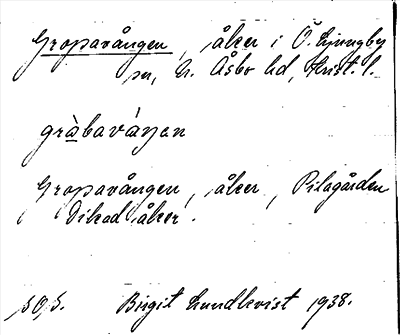 Gropavången, åker i Ö. Ljungby
sn, N. Åsbo hd, Krist. l.
gràbaváŋən
Gropavången, åker, Pilagården
Dikad åker.
Birgit Lundkvist 1938.